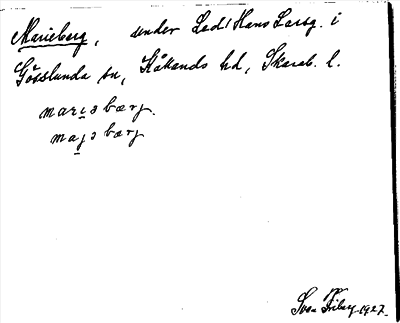 Marieberg, under Lad/Hans Larsg. i
Gösslunda sn, Kållands hd, Skarab. l.
mariəbærj.
majəbærj
Sven Friberg 1927.